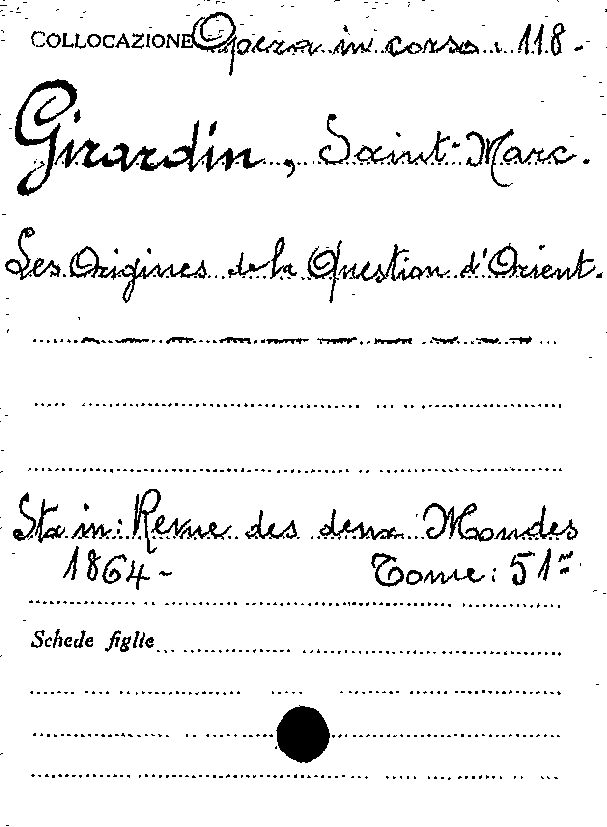 COLLOCAZIONE Opera in corso. 118-
Girardin, Saint-Marc.
Les Origines de la Question d'Orient.
Sta in: Revue des deux Mondes
1864- Tome: 51me
Schede figlie